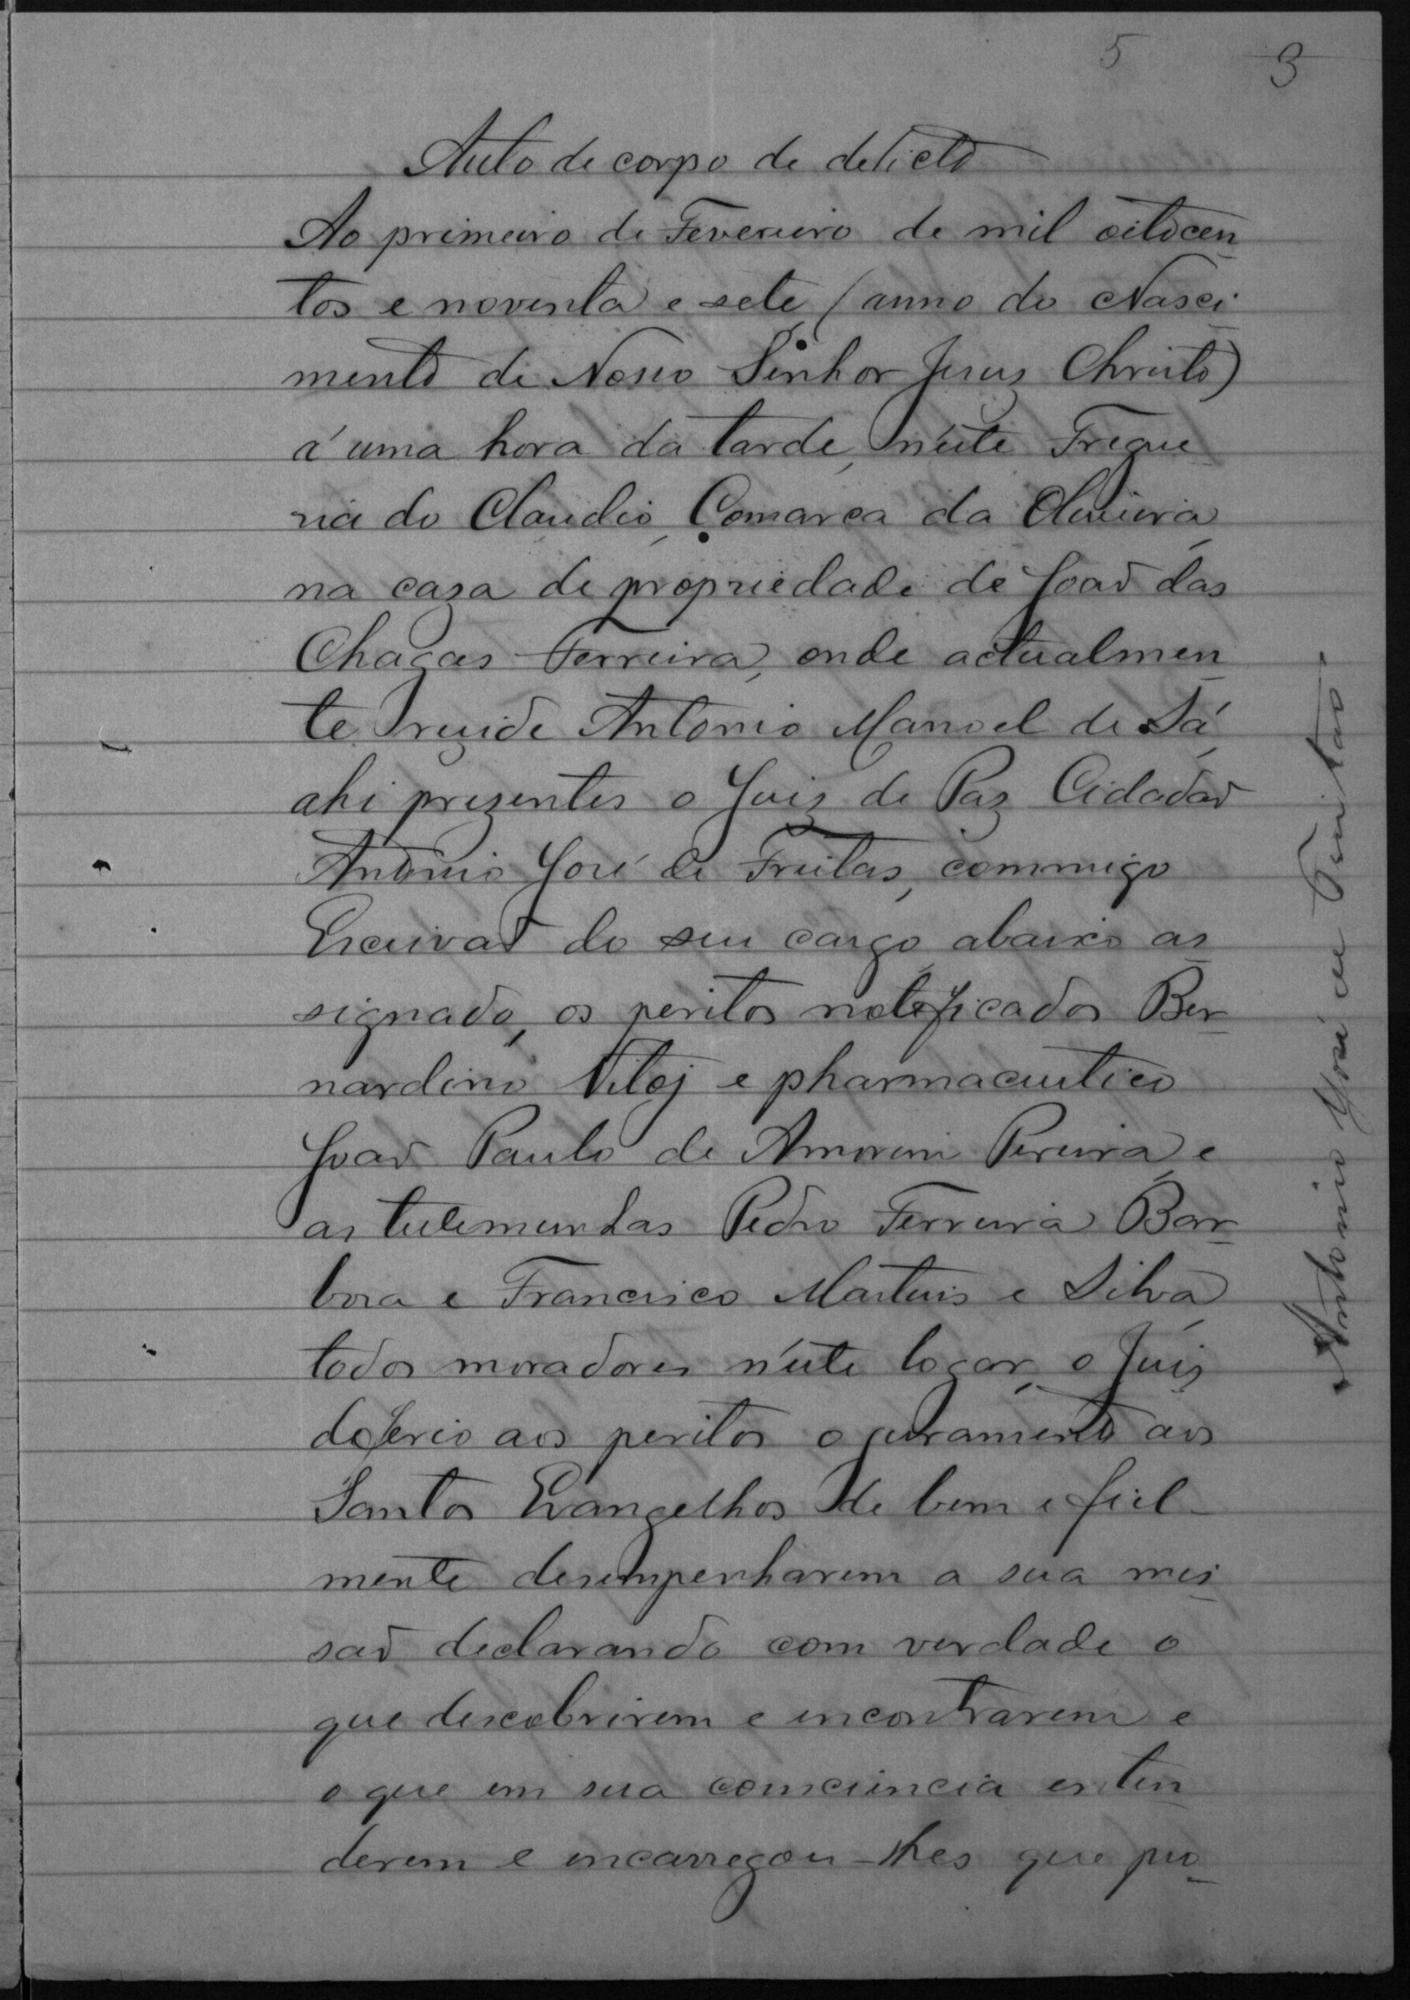 5 3
Auto de corpo de delicto
Ao primeiro de Fevereiro de mil oitocen
tos e noventa e sete, (anno do Nasci
mento de Nosso Senhor Jesus Christo)
á uma hora da tarde, n'éste Fregue
sia do Claudio, Comarca da Oliveira,
na caza de propriedade de Joaõ das
Chagas Ferreira, onde actualmen
te rezide Antonio Manoel de Sá,
ahi prezentes o Juiz de Paz Cidadaõ
Antonio José de Freitas, commigo
Escrivaõ do seu cargo, abaixo as
signado, os peritos notificados Ber
nardino e pharmaceutico
Joaõ Paulo de Amorim Pereira, e
as testemunhas Pedro Ferreira Bar
bosa e Francisco Martins e Silva,
todos moradores n'éste logar, o Juiz
deferio aos peritos o juramento aos
Santos Evangelhos de bem e fiel-
mente desempenharem a sua mis
saõ declarando com verdade o
que descobrirem e encontrarem e
o que em sua consciencia enten
derem e encarregou-lhes que pro
Antonio José de Freitas